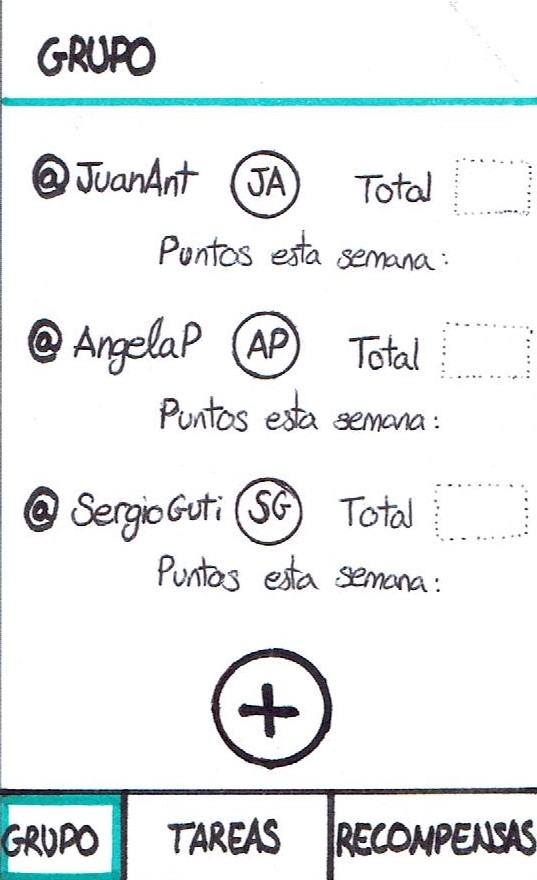 GRUPO
@JuanAnt JA Total
Puntos esta semana:
@AngelaP AP Total
Puntos esta semana:
@SergioGuti SG Total
Puntos esta semana:
+
GRUPO TAREAS RECOMPENSAS